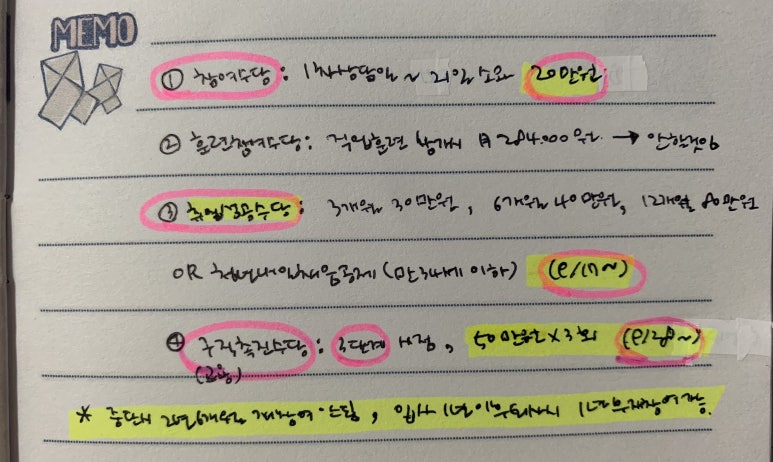 MEMO
① 참여수당 : 1차상담일 ~ 21일 소요 20만원
② 훈련참여수당 : 직업훈련 참여시 月 284.000원 → 안할것임
③ 취업성공수당 : 3개월 30만원, 6개월 40만원, 12개월 80만원
OR 청년내일채움공제 (만 34세 이하) (9/17~)
④ 구직촉진수당 : 3단계 시점, 50만원 X 3회 (9/28~)
(고용)
* 중단시 2년6개월 재참여 , 입사 1년이후 1년후재참여가능.